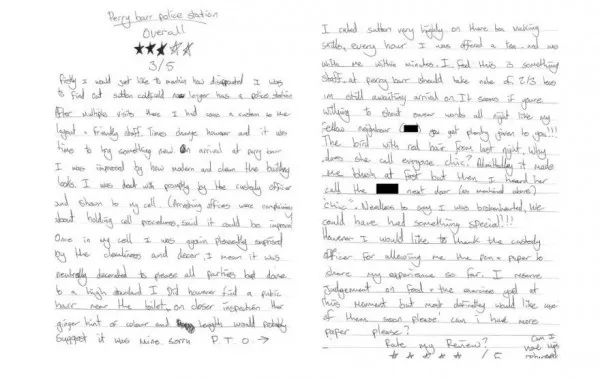 Perry barr police station
Overall
★★★☆☆
3/5
Firstly I would just like to mention how disappointed I was
to find out sutton coldfield no longer has a police station
After multiple visits there I had was a custom to the
layout + friendly staff. Times change however and it was
time to try something new. On arrival at perry barr
I was impressed by how modern and clean the building
looks. I was dealt with promptly by the custody officer
and shown to my cell. (Arresting officers were complaining
about holding cell procedures, said it could be improved
Once in my cell I was again pleasently surprised
by the cleanliness and decor, I mean it was
neutrally decorated to please all parties but done
to a high standard I did however find a pubic
hair near the toilet, on closer inspection the
ginger hint of colour and length would probably
suggest it was mine. sorry P T O →
I rated sutton very highly on there tea making
skills, every hour I was offered a tea and was
with me within minutes. I feel this is something
staff at perry barr should take note of 2/3 teas
im still awaiting arrival on. It seems if youre
willying to shout swear words all night like my
fellow neighbour ( ) you get plenty given to you!!!
The bird with red hair from last night, Why
does she call everyone chic? Admittedly it made
me blush at first but then I heard her
call the next door (as mentioned above)
"chic". Needless to say I was brokenhearted, We
could have had something special!!!
However I would like to thank the custody
officer for allowing me the pen + paper to
share my experience so far. I reserve
judgement on food + the exercise yard at
this moment but most definitley would like use
of them soon please! can i have more
paper please?
Rate my Review?
☆ ☆ ☆ ☆ ☆ /5
Can I
vape